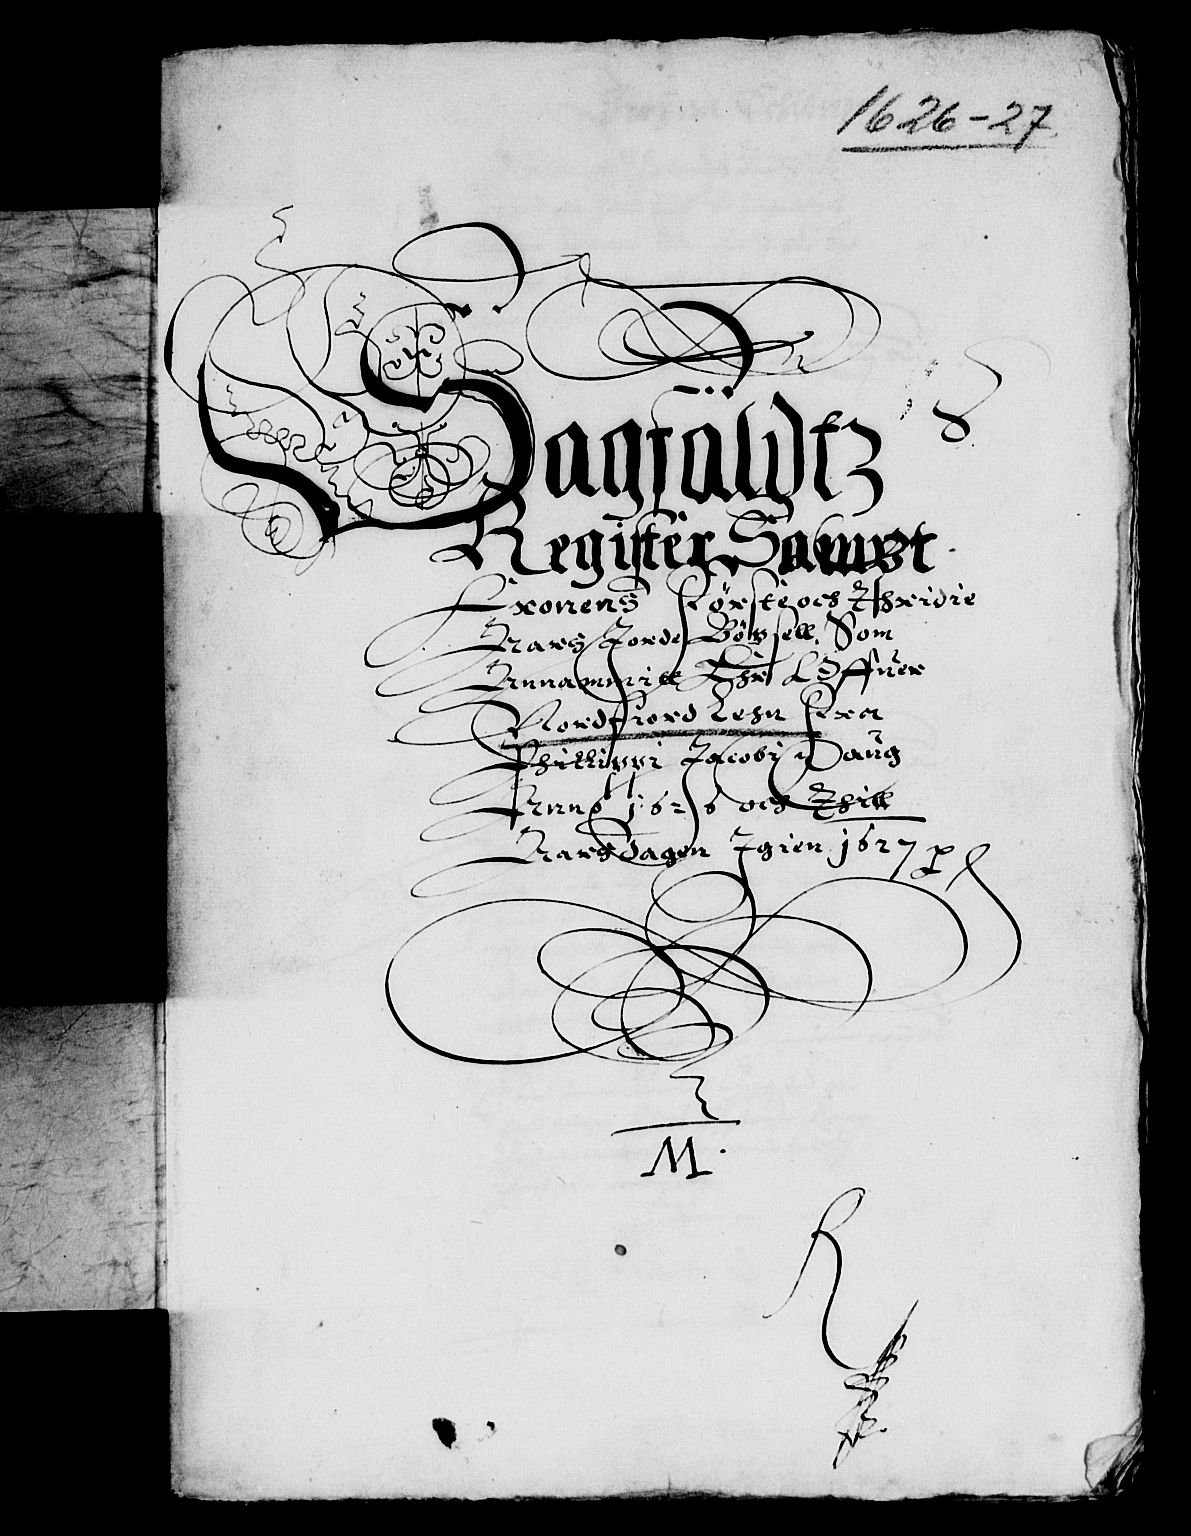 1626-27
Sagfäldtz
Register Sampt
Cronens Förste och Thridie
Aars Jorde Böxsell, Som
Annammitt Ehr Offuer
Nordfiord Lehn Fra
Phillippi Jacobi Daug
Anno 1626 och Thill
Aarsdagen Igien 1627
M.